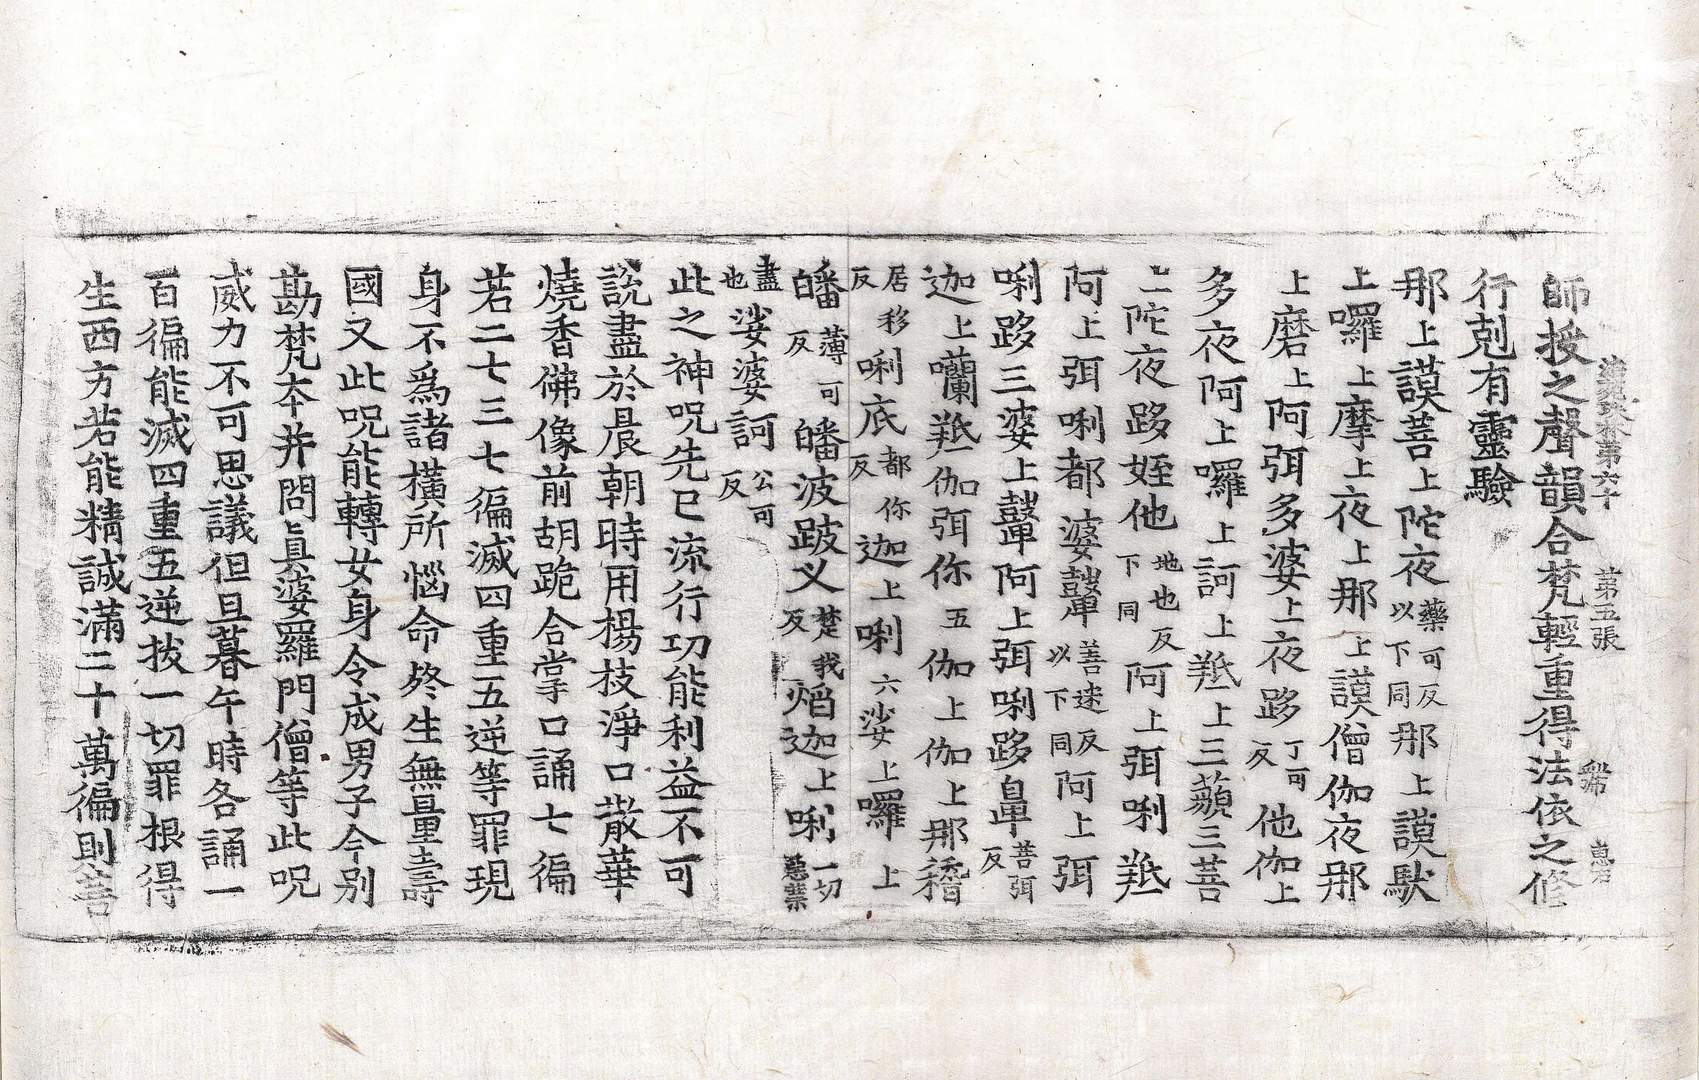 法苑珠林第六十 第五張 弊 惠
師授之聲韻合梵輕重得法依之修
行剋有靈驗
那上謨菩上陀夜藥可反以下同那上謨馱
上囉上摩上夜上那上謨僧伽夜那
上磨上阿弭多婆上夜路丁可反他伽上
多夜阿上囉上訶上羝上三藐三菩
上陀夜路姪他地也反下同阿上弭唎羝
阿上弭唎都婆鼙菩迷反以下同阿上弭
唎路三婆上鼙阿上弭唎路鼻菩弭反
迦上蘭羝伽弭你五伽上伽上那稽
居移反唎底都你反迦上唎六娑上囉上
皤薄可反皤波跛义楚我反焰迦上唎一切惡業
盡也娑婆訶公可反
此之神呪先已流行功能利益不可
說盡於晨朝時用楊枝淨口散華
燒香佛像前胡跪合掌口誦七徧
若二七三七徧滅四重五逆等罪現
身不爲諸橫所惱命終生無量壽
國又此呪能轉女身令成男子今別
勘梵夲并問眞婆羅門僧等此呪
威力不可思議但旦暮午時各誦一
百徧能滅四重五逆拔一切罪根得
生西方若能精誠滿二十萬徧則菩